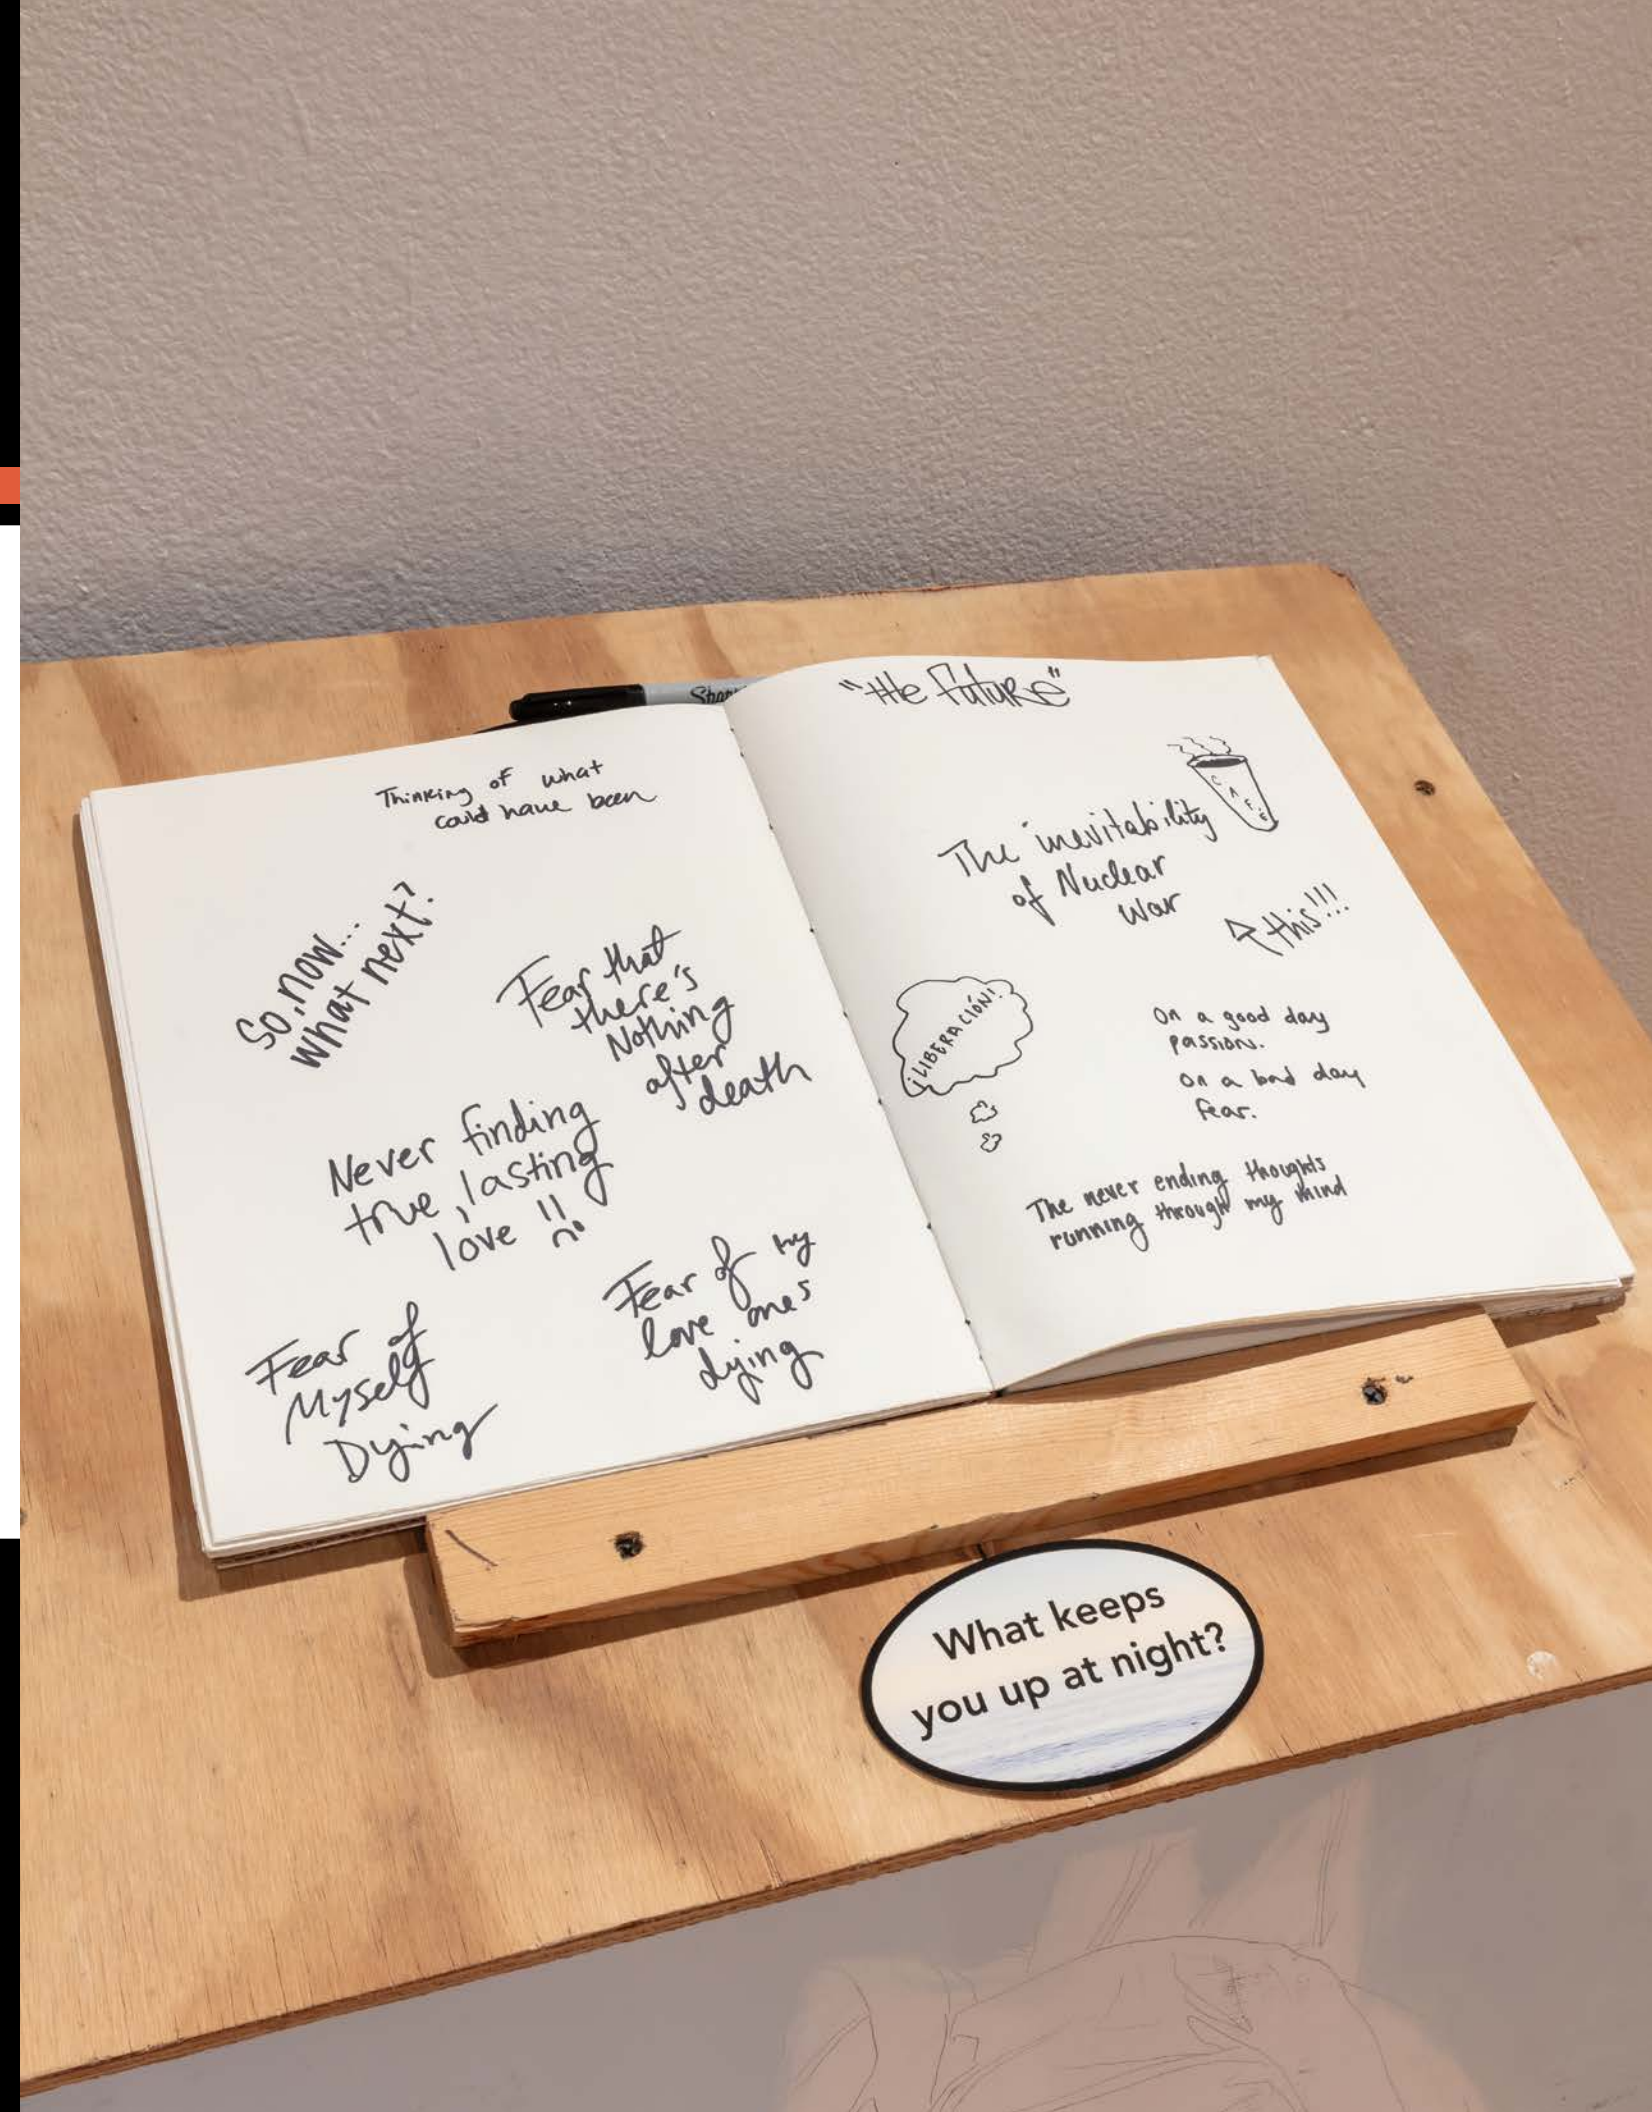 Thinking of what
could have been
So, now...
what next?
Fear that
there's
Nothing
after
death
Never finding
true, lasting
love
Fear of my
love ones
dying
Fear of
Myself
Dying
"the Future"
CAFE
The inevitability
of Nuclear
War
this!!!
¡LIBERACIÓN!
On a good day
passion.
On a bad day
fear.
The never ending thoughts
running through my mind
What keeps
you up at night?